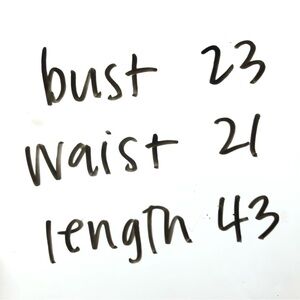 bust 23
waist 21
length 43